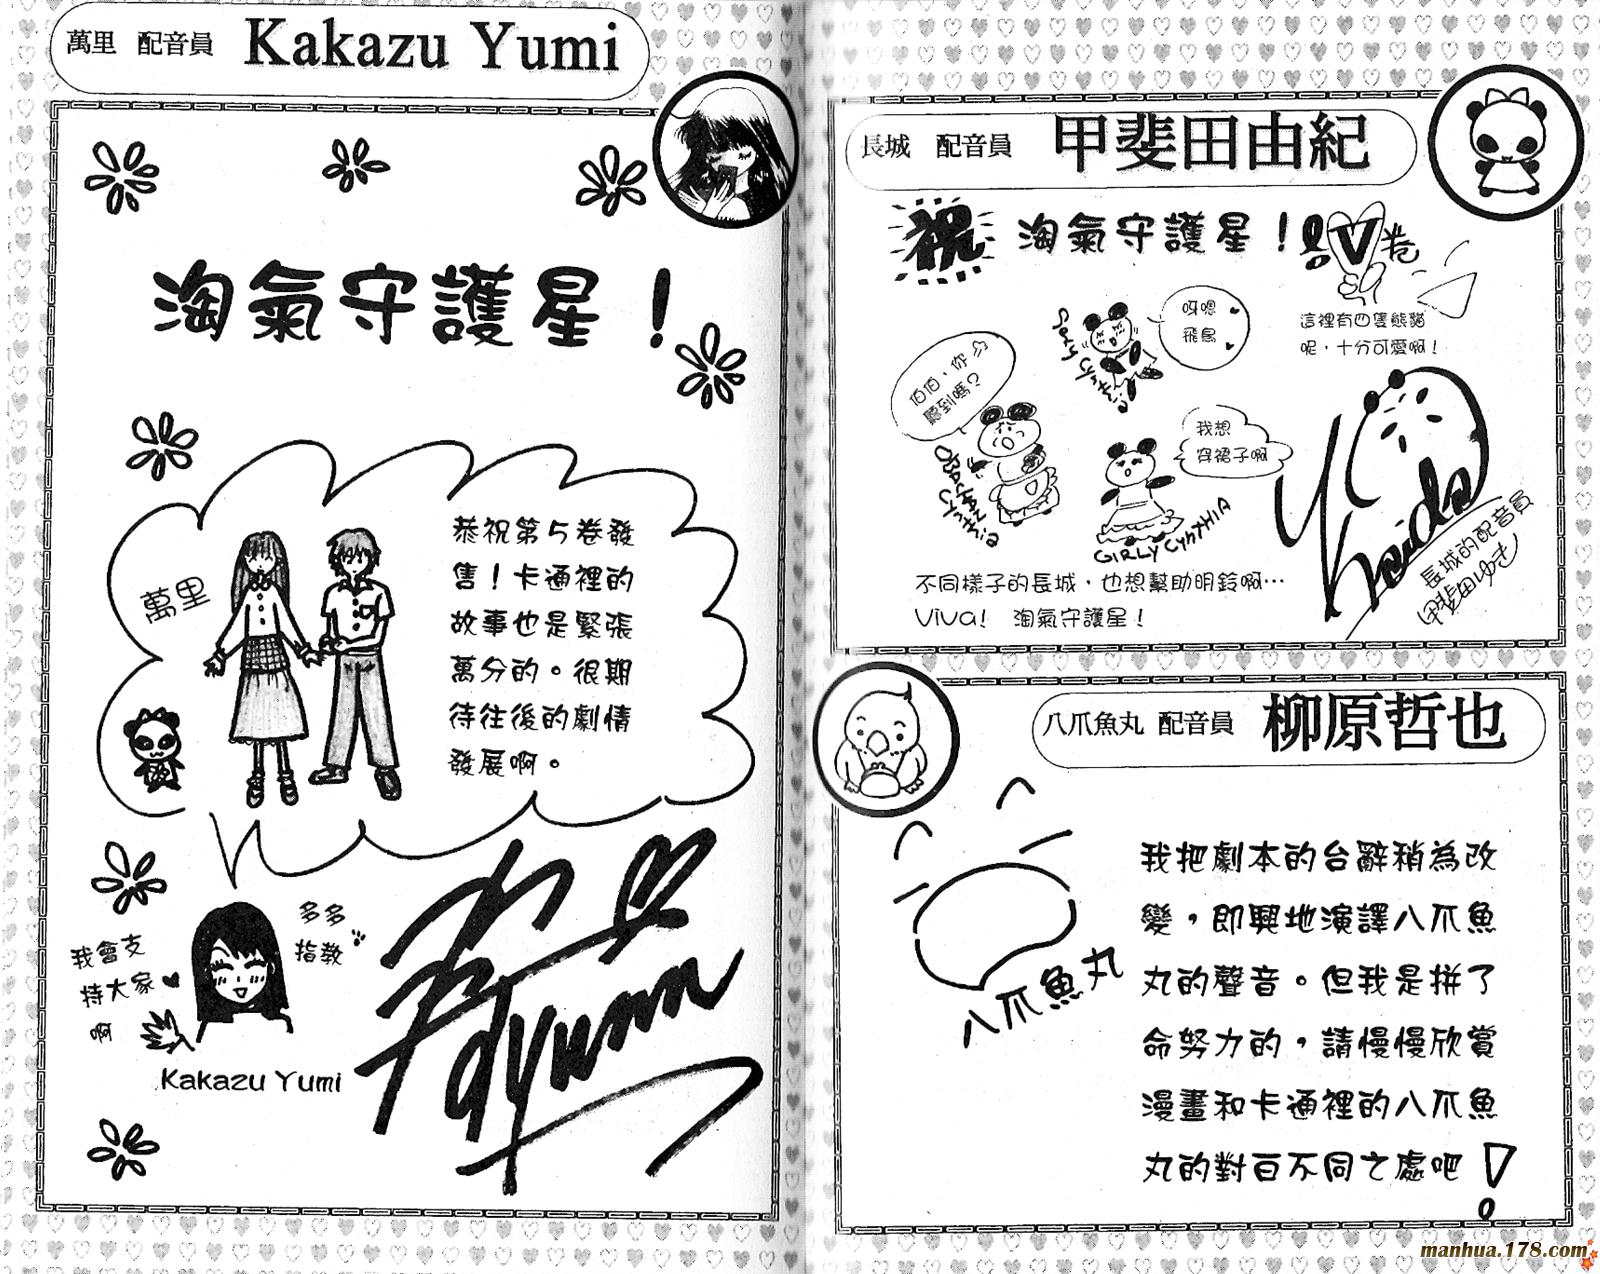 萬里 配音員 Kakazu Yumi
淘氣守護星！
萬里
恭祝第5卷發
售！卡通裡的
故事也是緊張
萬分的。很期
待往後的劇情
發展啊。
多多
指教
我會支
持大家♥
啊
Kakazu Yumi
長城 配音員 甲斐田由紀
祝 淘氣守護星！！V卷
這裡有四隻熊貓
呢，十分可愛啊！
呀嗯
飛鳥
Sexy Cynthia
伯伯，你
聽到嗎？
OBACHAN
Cynthia
我想
穿裙子啊
GIRLY CYNTHIA
長城的配音員
甲斐田ゆき
不同樣子的長城，也想幫助明鈴啊…
Viva! 淘氣守護星！
八爪魚丸 配音員 柳原哲也
八爪魚丸
我把劇本的台辭稍為改
變，即興地演譯八爪魚
丸的聲音。但我是拼了
命努力的，請慢慢欣賞
漫畫和卡通裡的八爪魚
丸的對白不同之處吧！
manhua.178.com